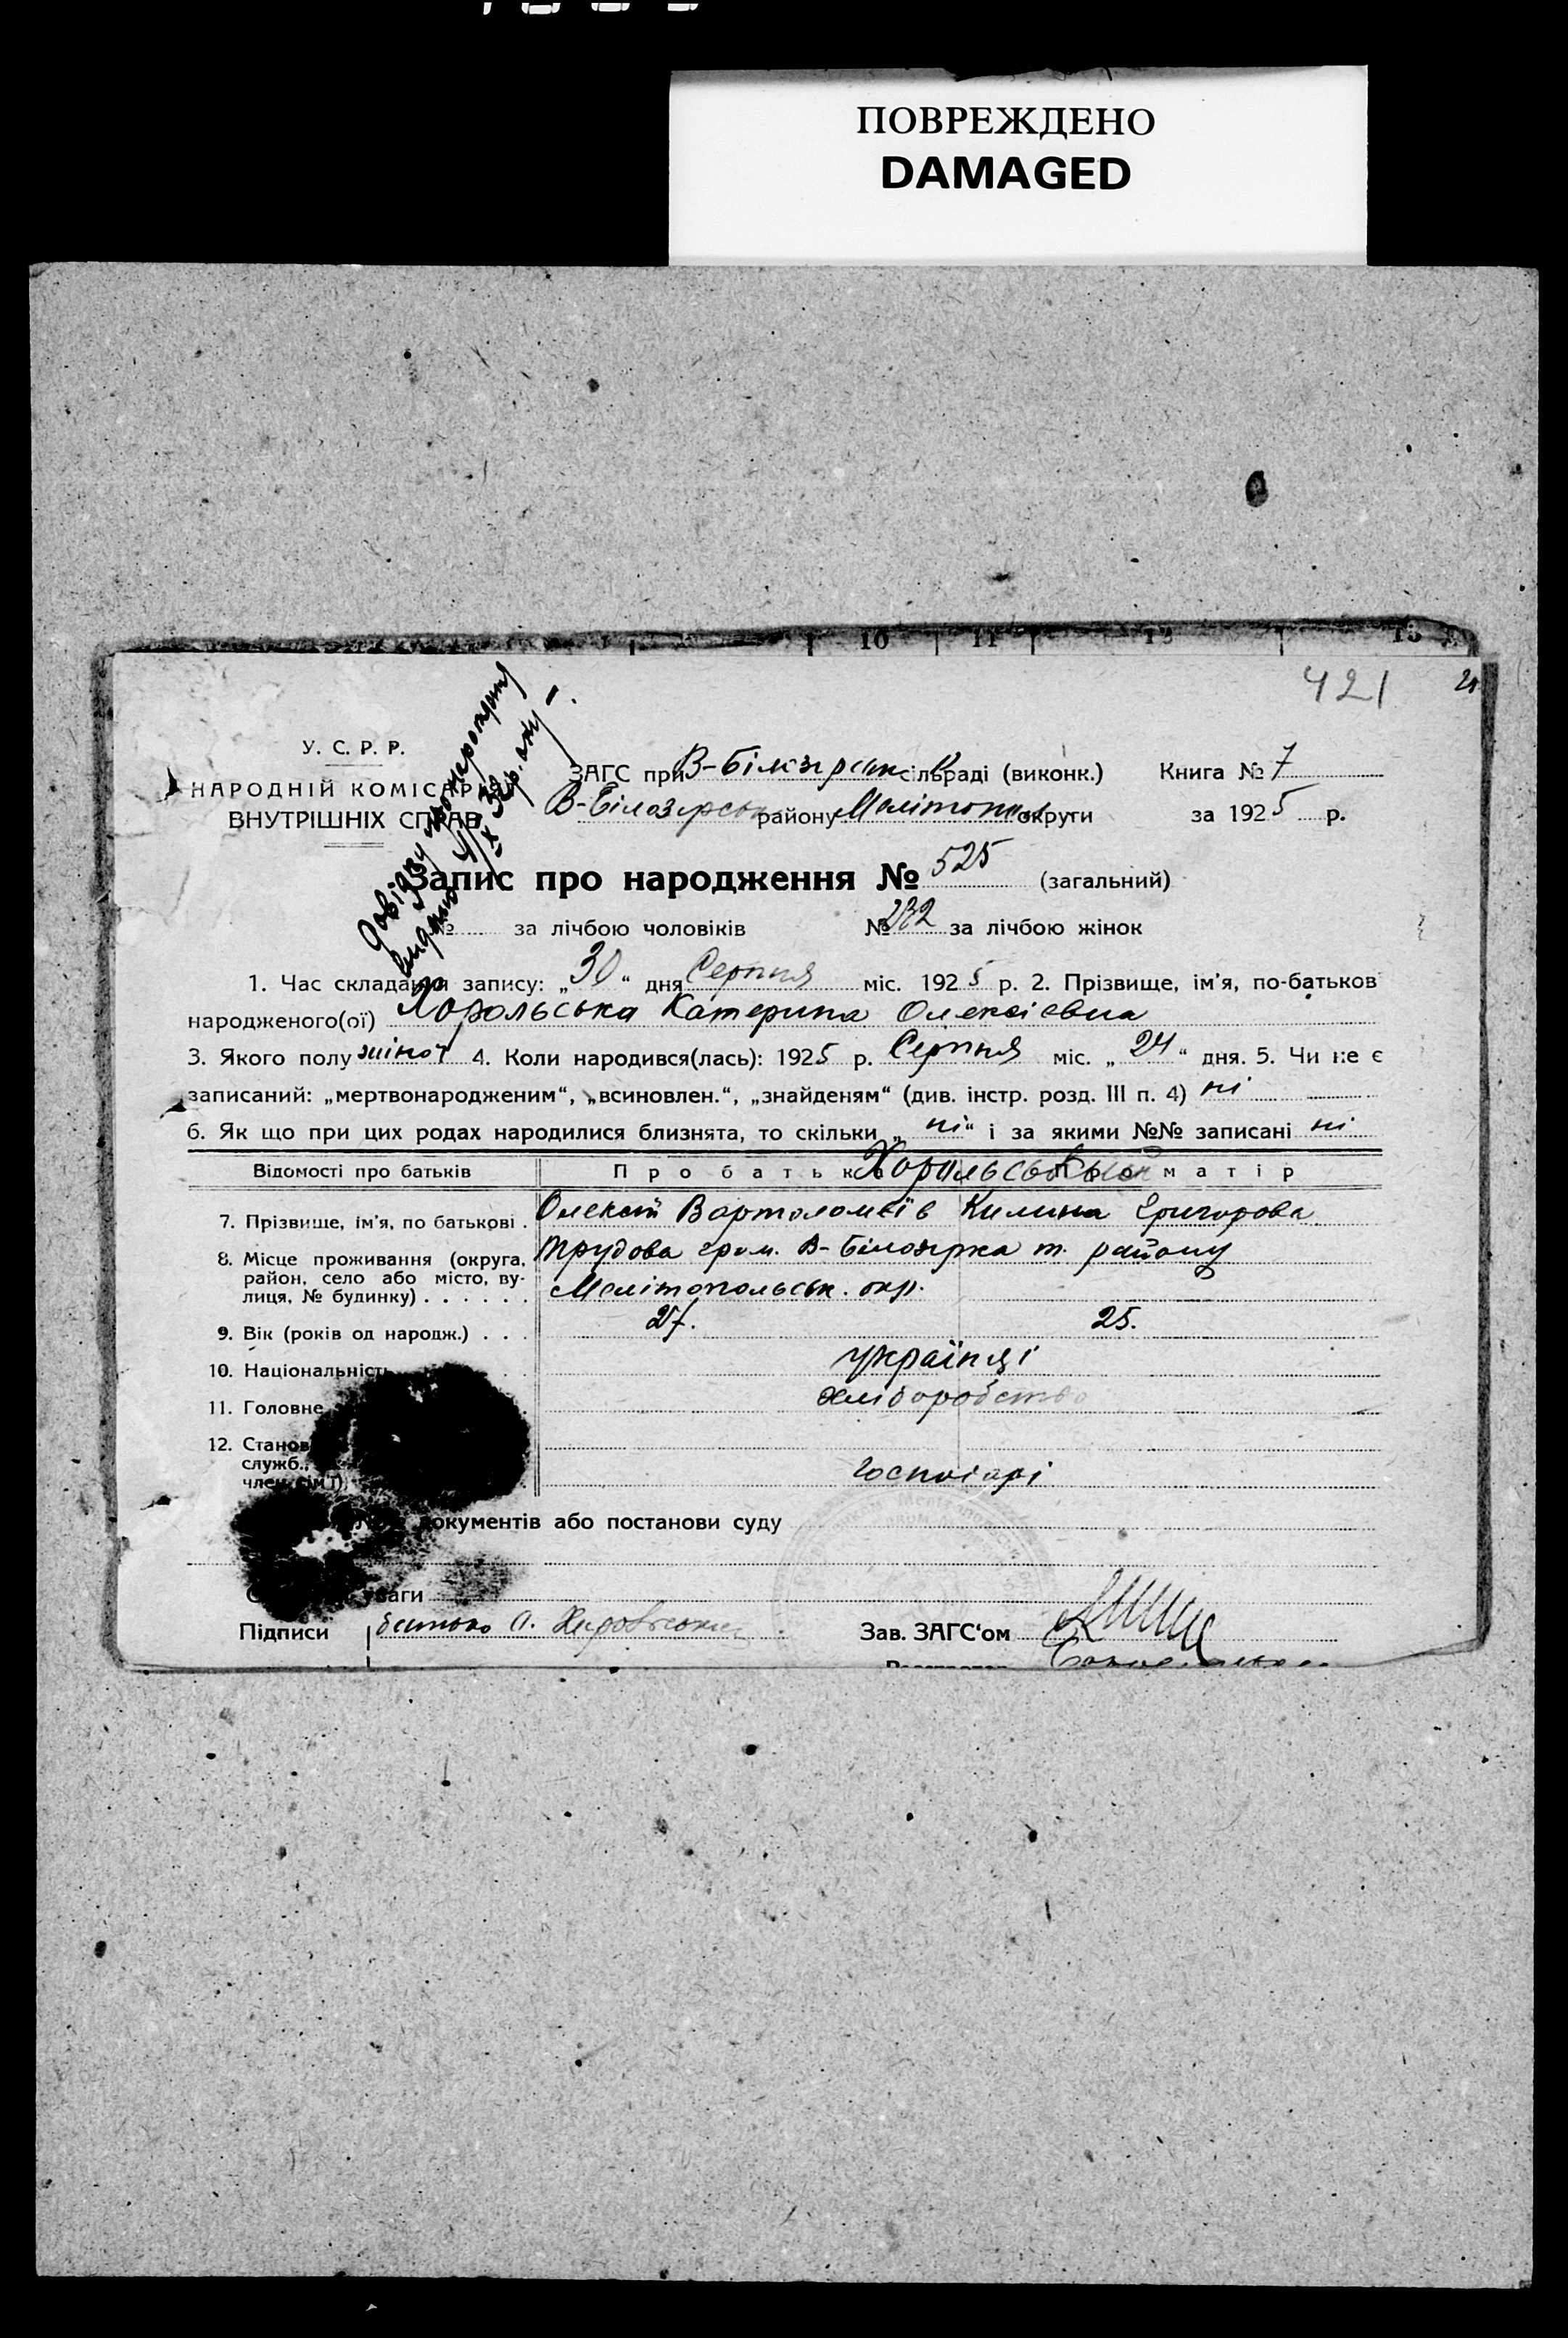 ПОВРЕЖДЕНО
DAMAGED
10 11 12 13
421
У. С. Р. Р.
НАРОДНІЙ КОМІСАРІЯТ
ВНУТРІШНІХ СПРАВ
Довідку про народження
видано
ЗАГС при В-Білозірськ сільраді (виконк.) Книга № 7
В-Білозирськ району Мелітоп округи за 1925 р.
Запис про народження № 525 (загальний)
№ за лічбою чоловіків № 232 за лічбою жінок
1. Час складання запису: „30“ дня Серпня міс. 1925 р. 2. Прізвище, ім'я, по-батьков
народженого(ої) Хорольська Катерина Олексієвна
3. Якого полу жіної 4. Коли народився(лась): 1925 р. Серпня міс. „24“ дня. 5. Чи не є
записаний: „мертвонародженим“, „всиновлен.“, „знайденям“ (див. інстр. розд. III п. 4) ні
6. Як що при цих родах народилися близнята, то скільки „ні“ і за якими №№ записані ні
Відомості про батьків Про батька Про матір
Хорольські
7. Прізвище, ім'я, по батькові . Олексій Вартоломеїв Килина Григорова
8. Місце проживання (округа, Трудова гром. В-Білозірка т. району
район, село або місто, ву-
лиця, № будинку) . . . . . . Мелітопольськ. окр.
9. Вік (років од народж.) . . . 27. 25.
10. Національність українці
11. Головне хліборобство
12. Станов
служб.,
член сім'ї) господарі
документів або постанови суду
уваги
Підписи батько О. Хорольський Зав. ЗАГС'ом